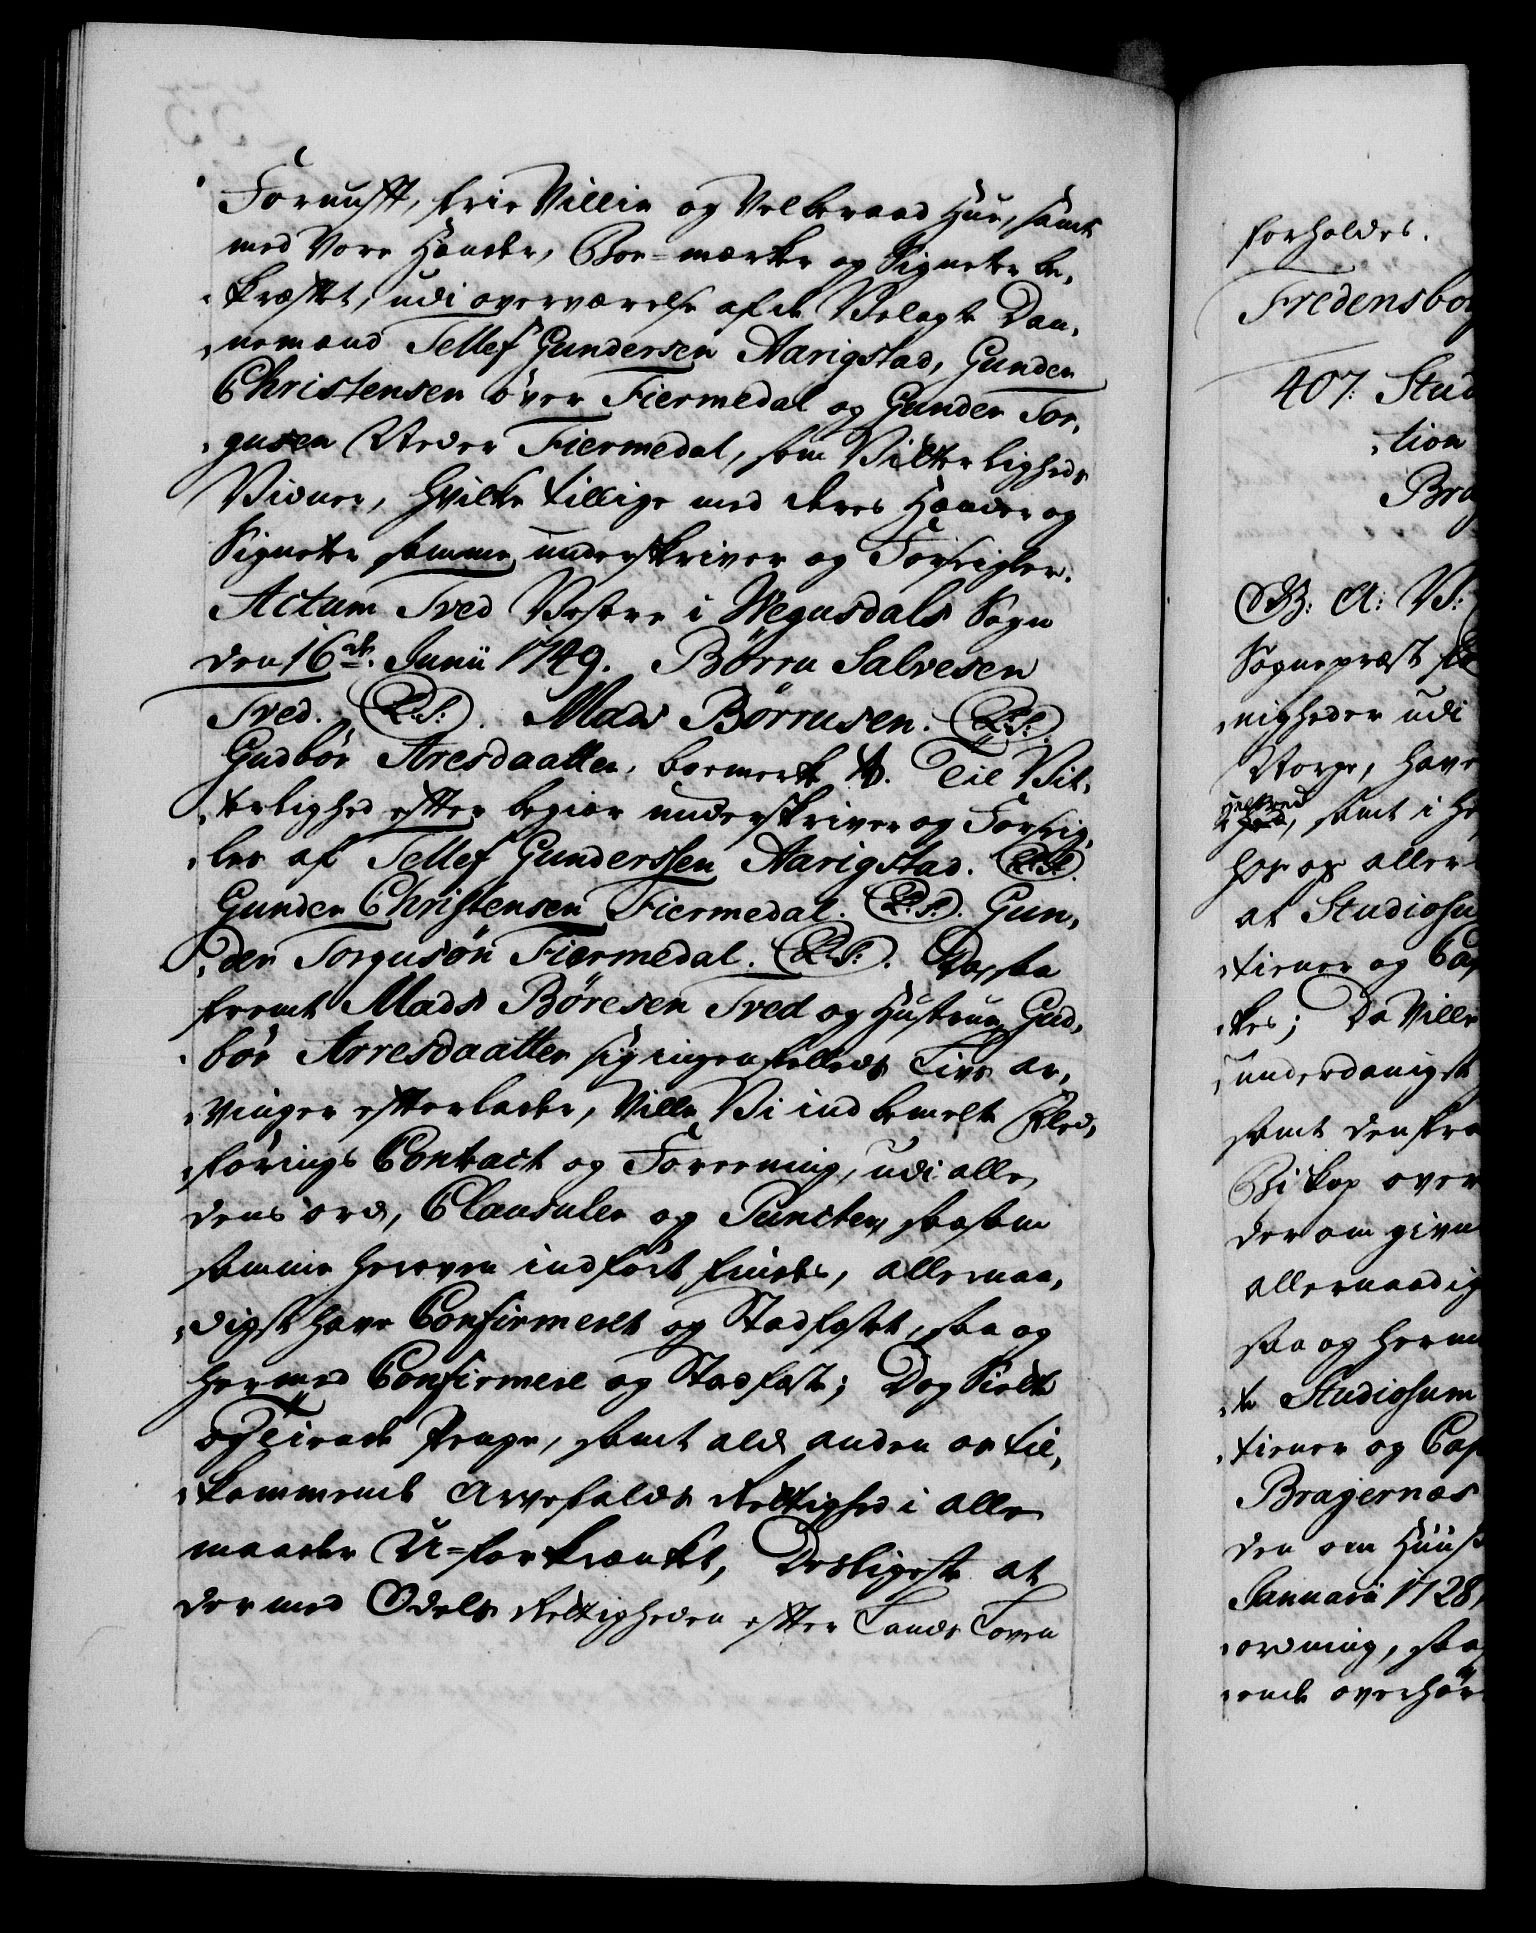 Fornuft, frie Villie og Velberaad Hue, samt
med Vore Hænder, Boe=mærker og Signeter be,
kræftet, udi overværelse af de Velagte Dan,
nemænd Tellef Gundersen Aarigstad, Gunder
Christensen över Fiermedal og Gunder Tor,
gusen Neder Fiermedal, som Vitterligheds
Vidner, hvilke tillige med deres Hænder og
Signeter samme underskriver og Forseigler.
Actum Tved Vestre i Wegusdals Sogn
den 16de. Junii 1749. Börru Salvesen
Tved. (L.S.). Mads Börrusen. (L.S.).
Gudbör Aresdaatter, boemerk A. Til Vit,
terlighed efter begier underskriver og Forseig,
ler af Tellef Gunderssen Aarigstad. (L.S.).
Gunder Christensen Fiermedal. (L.S.). Gun,
der Torgusön Fiermedal. (L.S.). Da, saa
fremt Mads Böresen Tved og Hustrue Gud,
bör Arresdaatter sig ingen fælleds Livs ar,
vinger efterlader, Ville Vi indbemelte Fled,
förings Contract og Foreening, udi alle
dens ord, Clausuler og Puncter, saasom
samme herover indfört findes, allernaa,
digst have Confirmeret og Stadfæstet, saa og
hermed Confirmere og Stadfæste; Dog Siette
og Tiende Penge, samt ald anden os til,
kommende Arvefalds Rettighed i alle
maader U=forkrænket, Desligeste at
dermed Odels Rettigheden efter Lands Loven
forholdes.
Fredensbor
407. Stud
tion
Bra
G: A: V:
Sogneprest
nigheder udi
Norge, have
samt i He
hos os aller
at Studiosu
tiener og Cap
kes; Da Ville
underdanigst
samt den fra
Biskop over
derom given
allernaadig
saa og herm
te Studiosum
tiener og Cap
Bragernæs
den om Huus
Januarii 1728,
ordning, saa
ende overhör